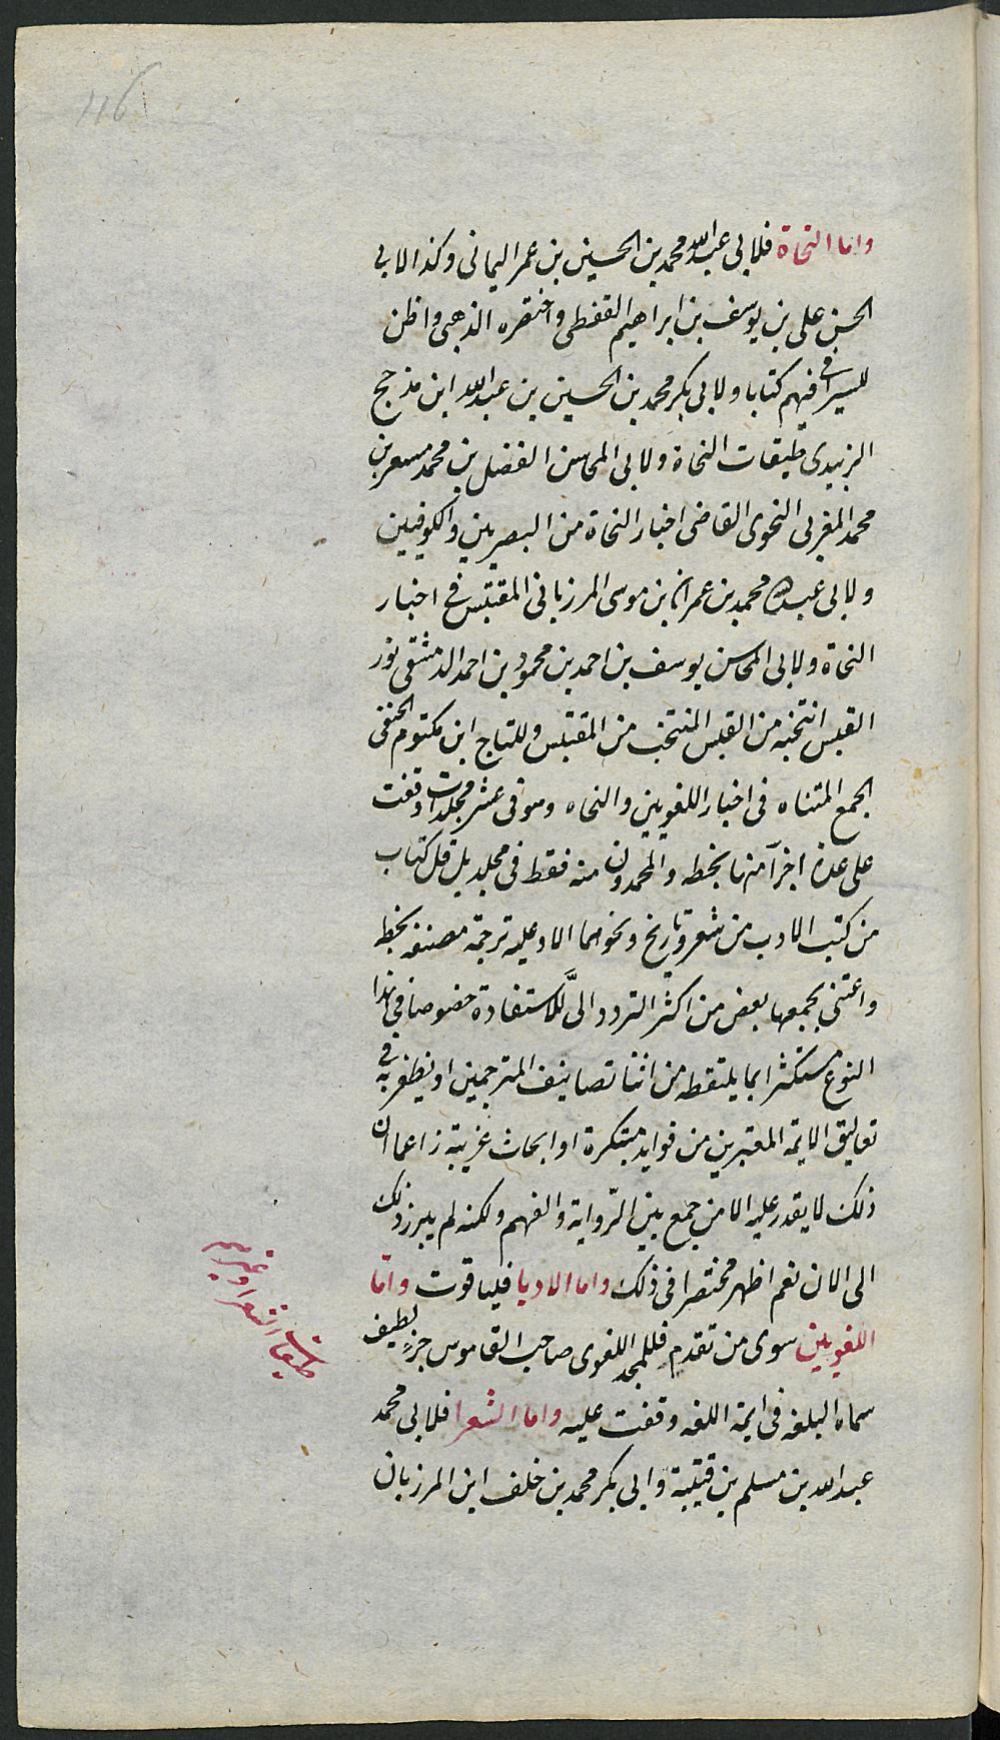 116
واما النحاة فلابى عبد الله محمد بن الحسين بن عمر اليمانى وكذا لابى
الحسن على بن يوسف بن ابراهيم القفطى واختصره الذهبى واظن
للسيرافى فيهم كتابا ولابى بكر محمد بن الحسين بن عبد الله ابن مذحج
الزبيدى طبقات النحاة ولابى المحاسن المفضل بن محمد مسعر بن
محمد المغربى النحوى القاضى اخبار النحاة من البصريين والكوفيين
ولابى عبد الله محمد بن عمران بن موسى المرزبانى المقتبس فى اخبار
النحاة ولابى المحاسن يوسف بن احمد بن محمود بن احمد الدمشقى نور
القبس انتخبه من القبس المنتخب من المقتبس وللتاج ابن مكتوم الحنفى
الجمع المتناه فى اخبار اللغويين والنحاه وهو فى عشر مجلدات وقفت
على عدة اجزآ منها بخطه والمحمدون منه فقط فى مجلد بل قل كتاب
من كتب الادب من شعر وتاريخ ونحوهما الا وعليه ترجمة مصنفه بخطه
واعتنى بجمعها بعض من اكثر التردد الىَّ للاستفادة خصوصا فى هذا
النوع مستكثرا بما يلتقطه من اثنا تصانيف المترجمين او يظفر به فى
تعاليق الايمة المعتبرين من فوايد مبتكرة او ابحاث غريبة زاعما ان
ذلك لا يقدر عليه الا من جمع بين الرّواية والفهم ولكنه لم يبرز ذلك
الى الان نعم اظهر مختصرا فى ذلك واما الادبا فلياقوت وامّا
اللغويين سوى من تقدم فللمجد اللغوى صاحب القاموس جزء لطيف
سماه البلغه فى ايمة اللغه وقفت عليه واما الشعرا فلابى محمد
عبد الله بن مسلم بن قتيبة وابى بكر محمد بن خلف ابن المرزبان
طبقات الشعرا وغيرهم